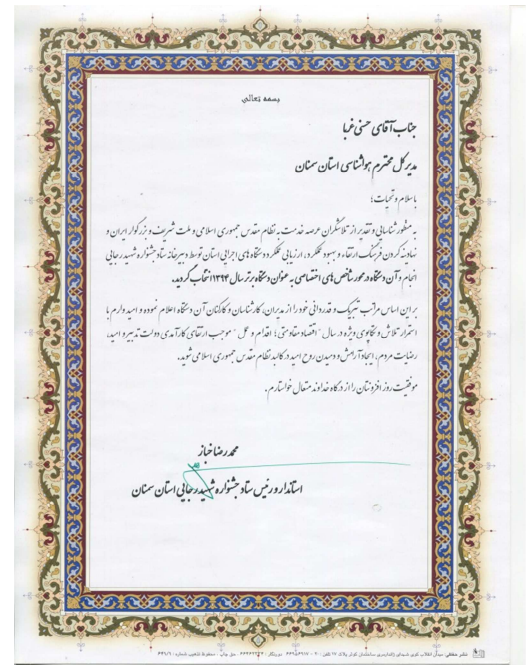 بسمه تعالی
جناب آقای حسنی غربا
مدیر کل محترم هواشناسی استان سمنان
با سلام و تحیات؛
به منظور شناسایی و تقدیر از تلاشگران عرصه خدمت به نظام مقدس جمهوری اسلامی و ملت شریف و بزرگوار ایران و
نهادینه کردن فرهنگ ارتقاء و بهبود عملکرد، ارزیابی عملکرد دستگاه های اجرایی استان توسط دبیرخانه ستاد جشنواره شهید رجایی
انجام و آن دستگاه در محور شاخص های اختصاصی به عنوان دستگاه برتر سال ۱۳۹۴ انتخاب گردید.
بر این اساس مراتب تبریک و قدردانی خود را از مدیران، کارشناسان و کارکنان آن دستگاه اعلام نموده و امید وارم با
استمرار تلاش و تکاپوی ویژه در سال "اقتصاد مقاومتی؛ اقدام و عمل" موجب ارتقای کارآمدی دولت تدبیر و امید،
رضایت مردم، ایجاد آرامش و دمیدن روح امید در کالبد نظام مقدس جمهوری اسلامی شوید.
موفقیت روز افزونتان را از درگاه خداوند متعال خواستارم.
محمد رضا خباز
استاندار و رئیس ستاد جشنواره شهید رجایی استان سمنان